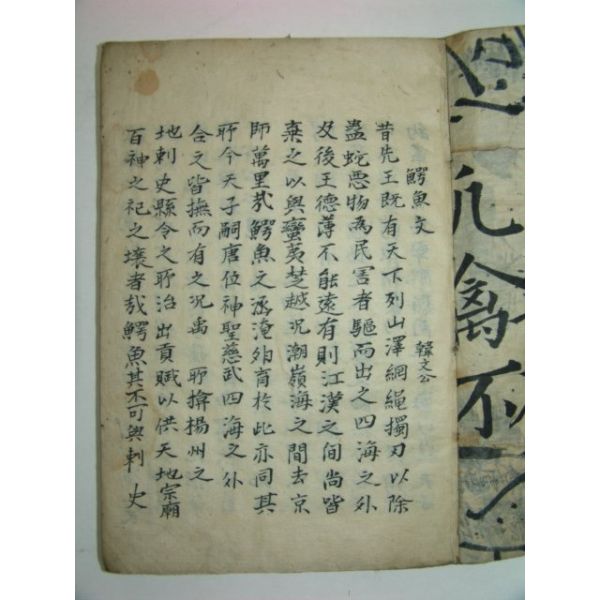 禽不
鰐魚文 韓文公
昔先王既有天下列山澤網繩擉刃以除
蟲蛇悪物為民害者驅而出之四海之外
及後王德薄不能遠有則江漢之间尚皆
棄之以與蠻夷楚越况潮嶺海之間去京
師萬里哉鰐魚之涵淹卵育於此亦同其
所今天子嗣唐位神聖慈武四海之外
合之皆撫而有之况禹所揜楊州之
地刺史縣令之所治出貢賦以供天地宗廟
百神之祀之壤者哉鰐魚其不可與刺史